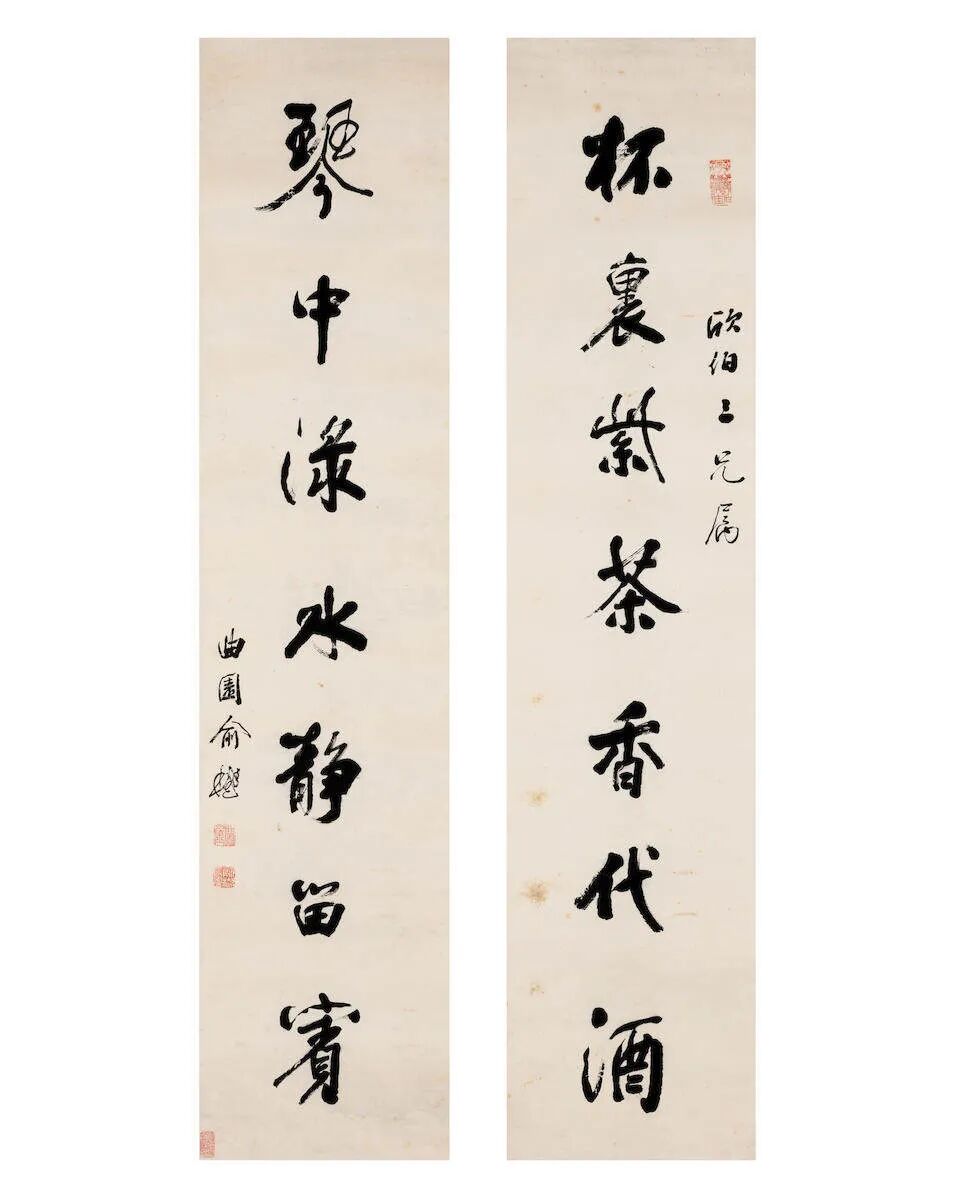 杯裏紫茶香代酒
欣伯三兄属
琴中渌水静留賓
曲園俞樾